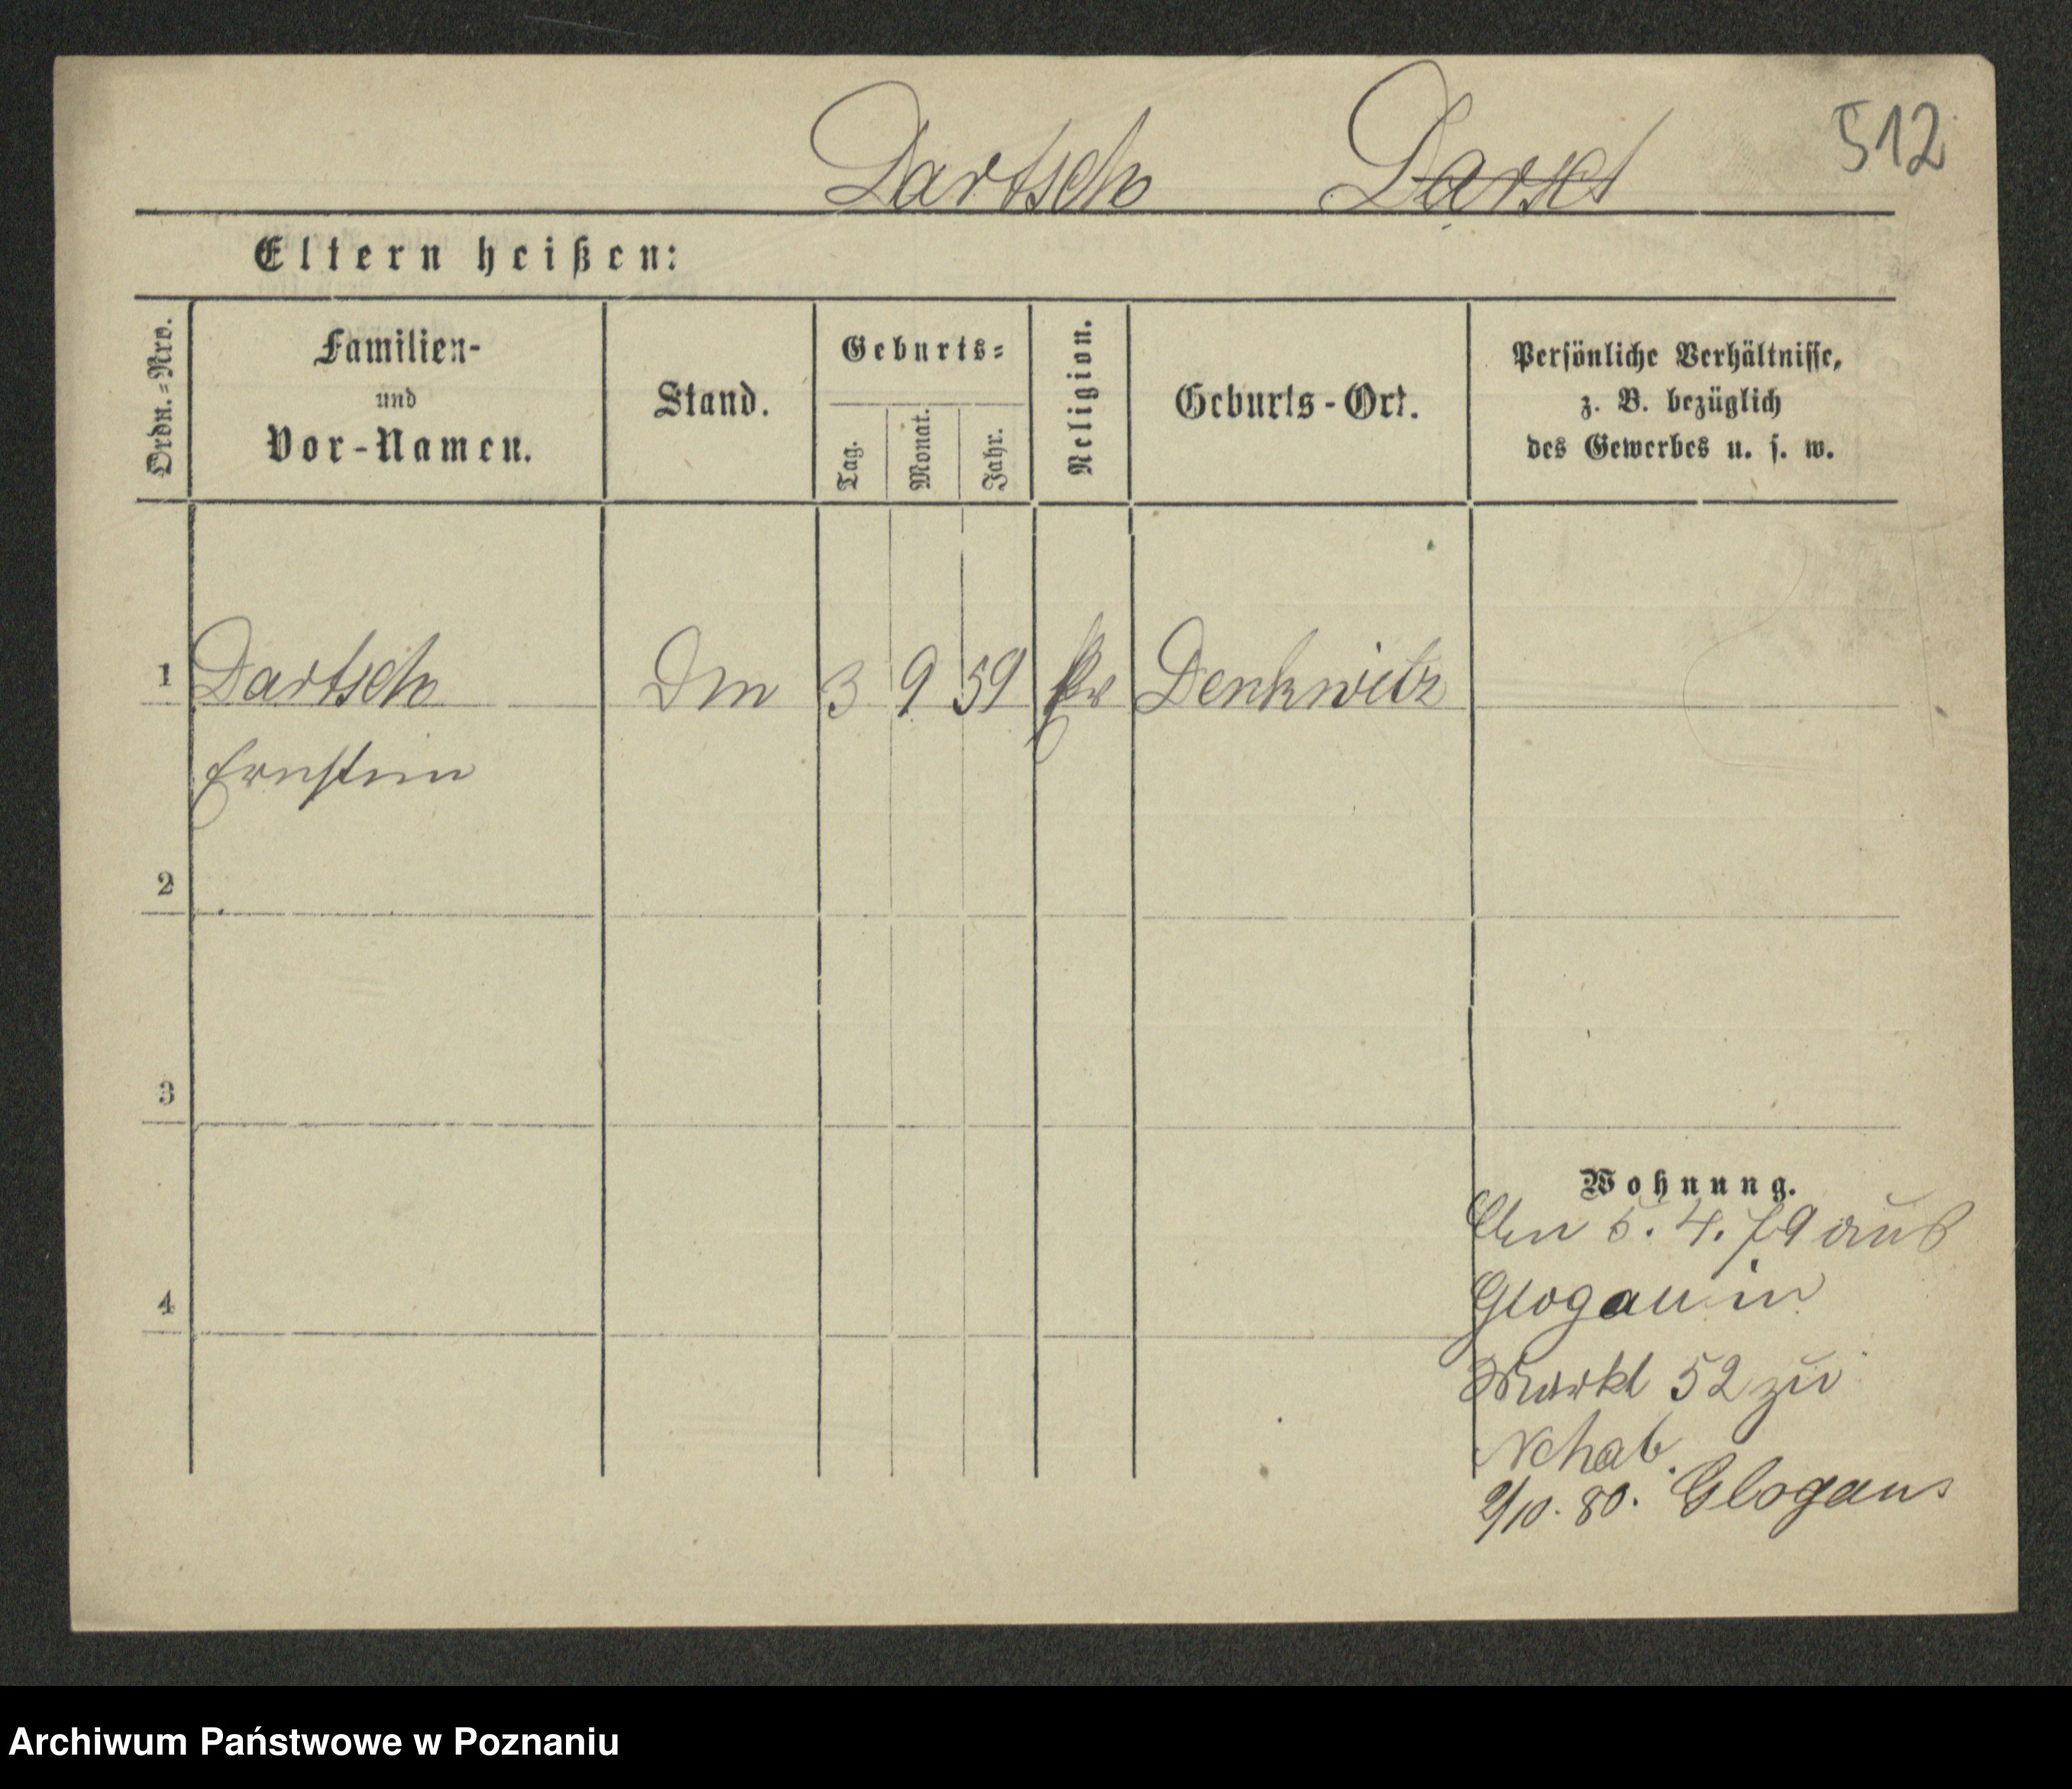 512
Dartsch
Eltern heißen:
Ordn.=Nro.
Familien-
und
Vor-Namen.
Stand.
Geburts=
Tag.
Monat.
Jahr.
Religion.
Geburts-Ort.
Persönliche Verhältnisse,
z. B. bezüglich
des Gewerbes u. s. w.
1 Dartsch Dm 3 9 59 Denkwitz
Ernstine
2
3
4
Wohnung.
5. 4. 79 aus
Glogau in
Markt 52 zu
Schab.
2/10. 80. Glogau
Archiwum Państwowe w Poznaniu